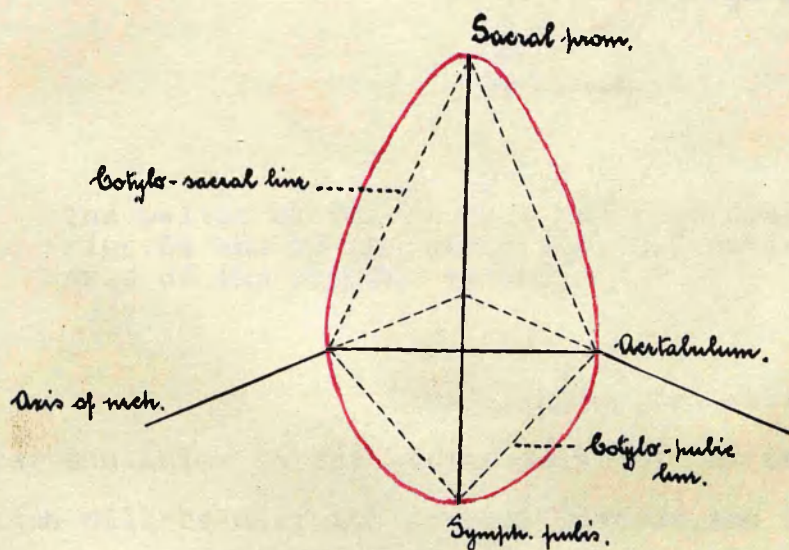 Sacral prom.
Cotylo-sacral line
Acetabulum.
Axis of neck.
Cotylo-pubic
line.
Symph. pubis.